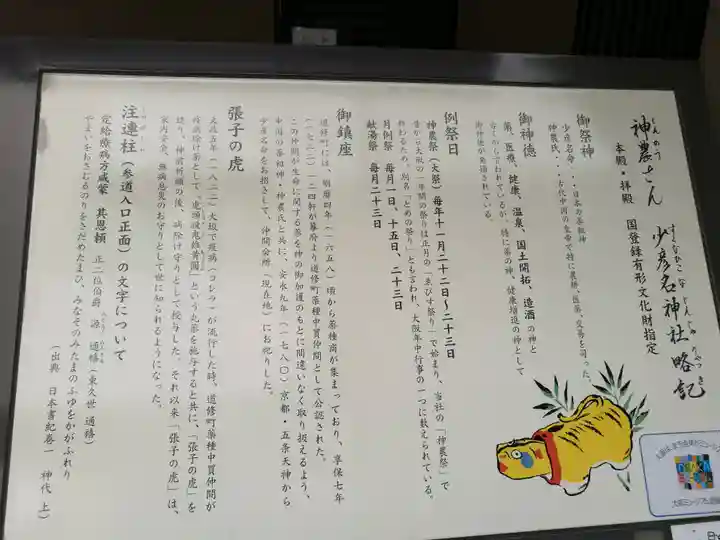 神農さん
しんのう
少彦名神社略記
すくなひこなじんじゃりゃっき
本殿・拝殿 国登録有形文化財指定
御祭神
少彦名命・・・日本の薬祖神
神農氏・・・古代中国の皇帝で特に農耕、医薬、交易を司った。
御神徳
薬、医療、健康、温泉、国土開拓、造酒の神と
古くから言われているが、特に薬の神、健康増進の神として
御神徳が発揚されている。
例祭日
神農祭(大祭)毎年十一月二十二日〜二十三日
昔から大阪の一年間の祭りは正月の「ゑびす祭り」で始まり、当社の「神農祭」で
終わるため、別名「とめの祭り」とも言われ、大阪年中行事の一つに数えられている。
月例祭 毎月一日、十五日、二十三日
献湯祭 毎月二十三日
御鎮座
道修町には、明暦四年(一六五八)頃から薬種商が集まっており、享保七年
(一七二二)一二四軒が幕府より道修町薬種中買仲間として公認された。
この仲間が生命に関する薬を神の御加護のもとに間違いなく取り扱えるよう、
中国の薬祖神・神農氏と共に、安永九年(一七八〇)京都・五条天神から
少彦名命をお招きして、仲間会所(現在地)にお祀りした。
張子の虎
文政五年(一八二二)大坂で疫病(コレラ)が流行した時、道修町薬種中買仲間が
疫病除け薬として「虎頭殺鬼雄黄圓」という丸薬を施与すると共に、「張子の虎」を
造り、神前祈願の後、病除け守りとして授与した。それ以来「張子の虎」は、
家内安全、無病息災のお守りとして世に知られるようになった。
注連柱(参道入口正面)の文字について
しめばしら
定給療病方咸蒙 其恩頼 正二位伯爵 源 通禧(東久世 通禧)
やまいをおさむるのりをさだめたまひ、みなそのみたまのふゆをかがふれり
(出典 日本書紀巻一 神代 上)
OSAKA